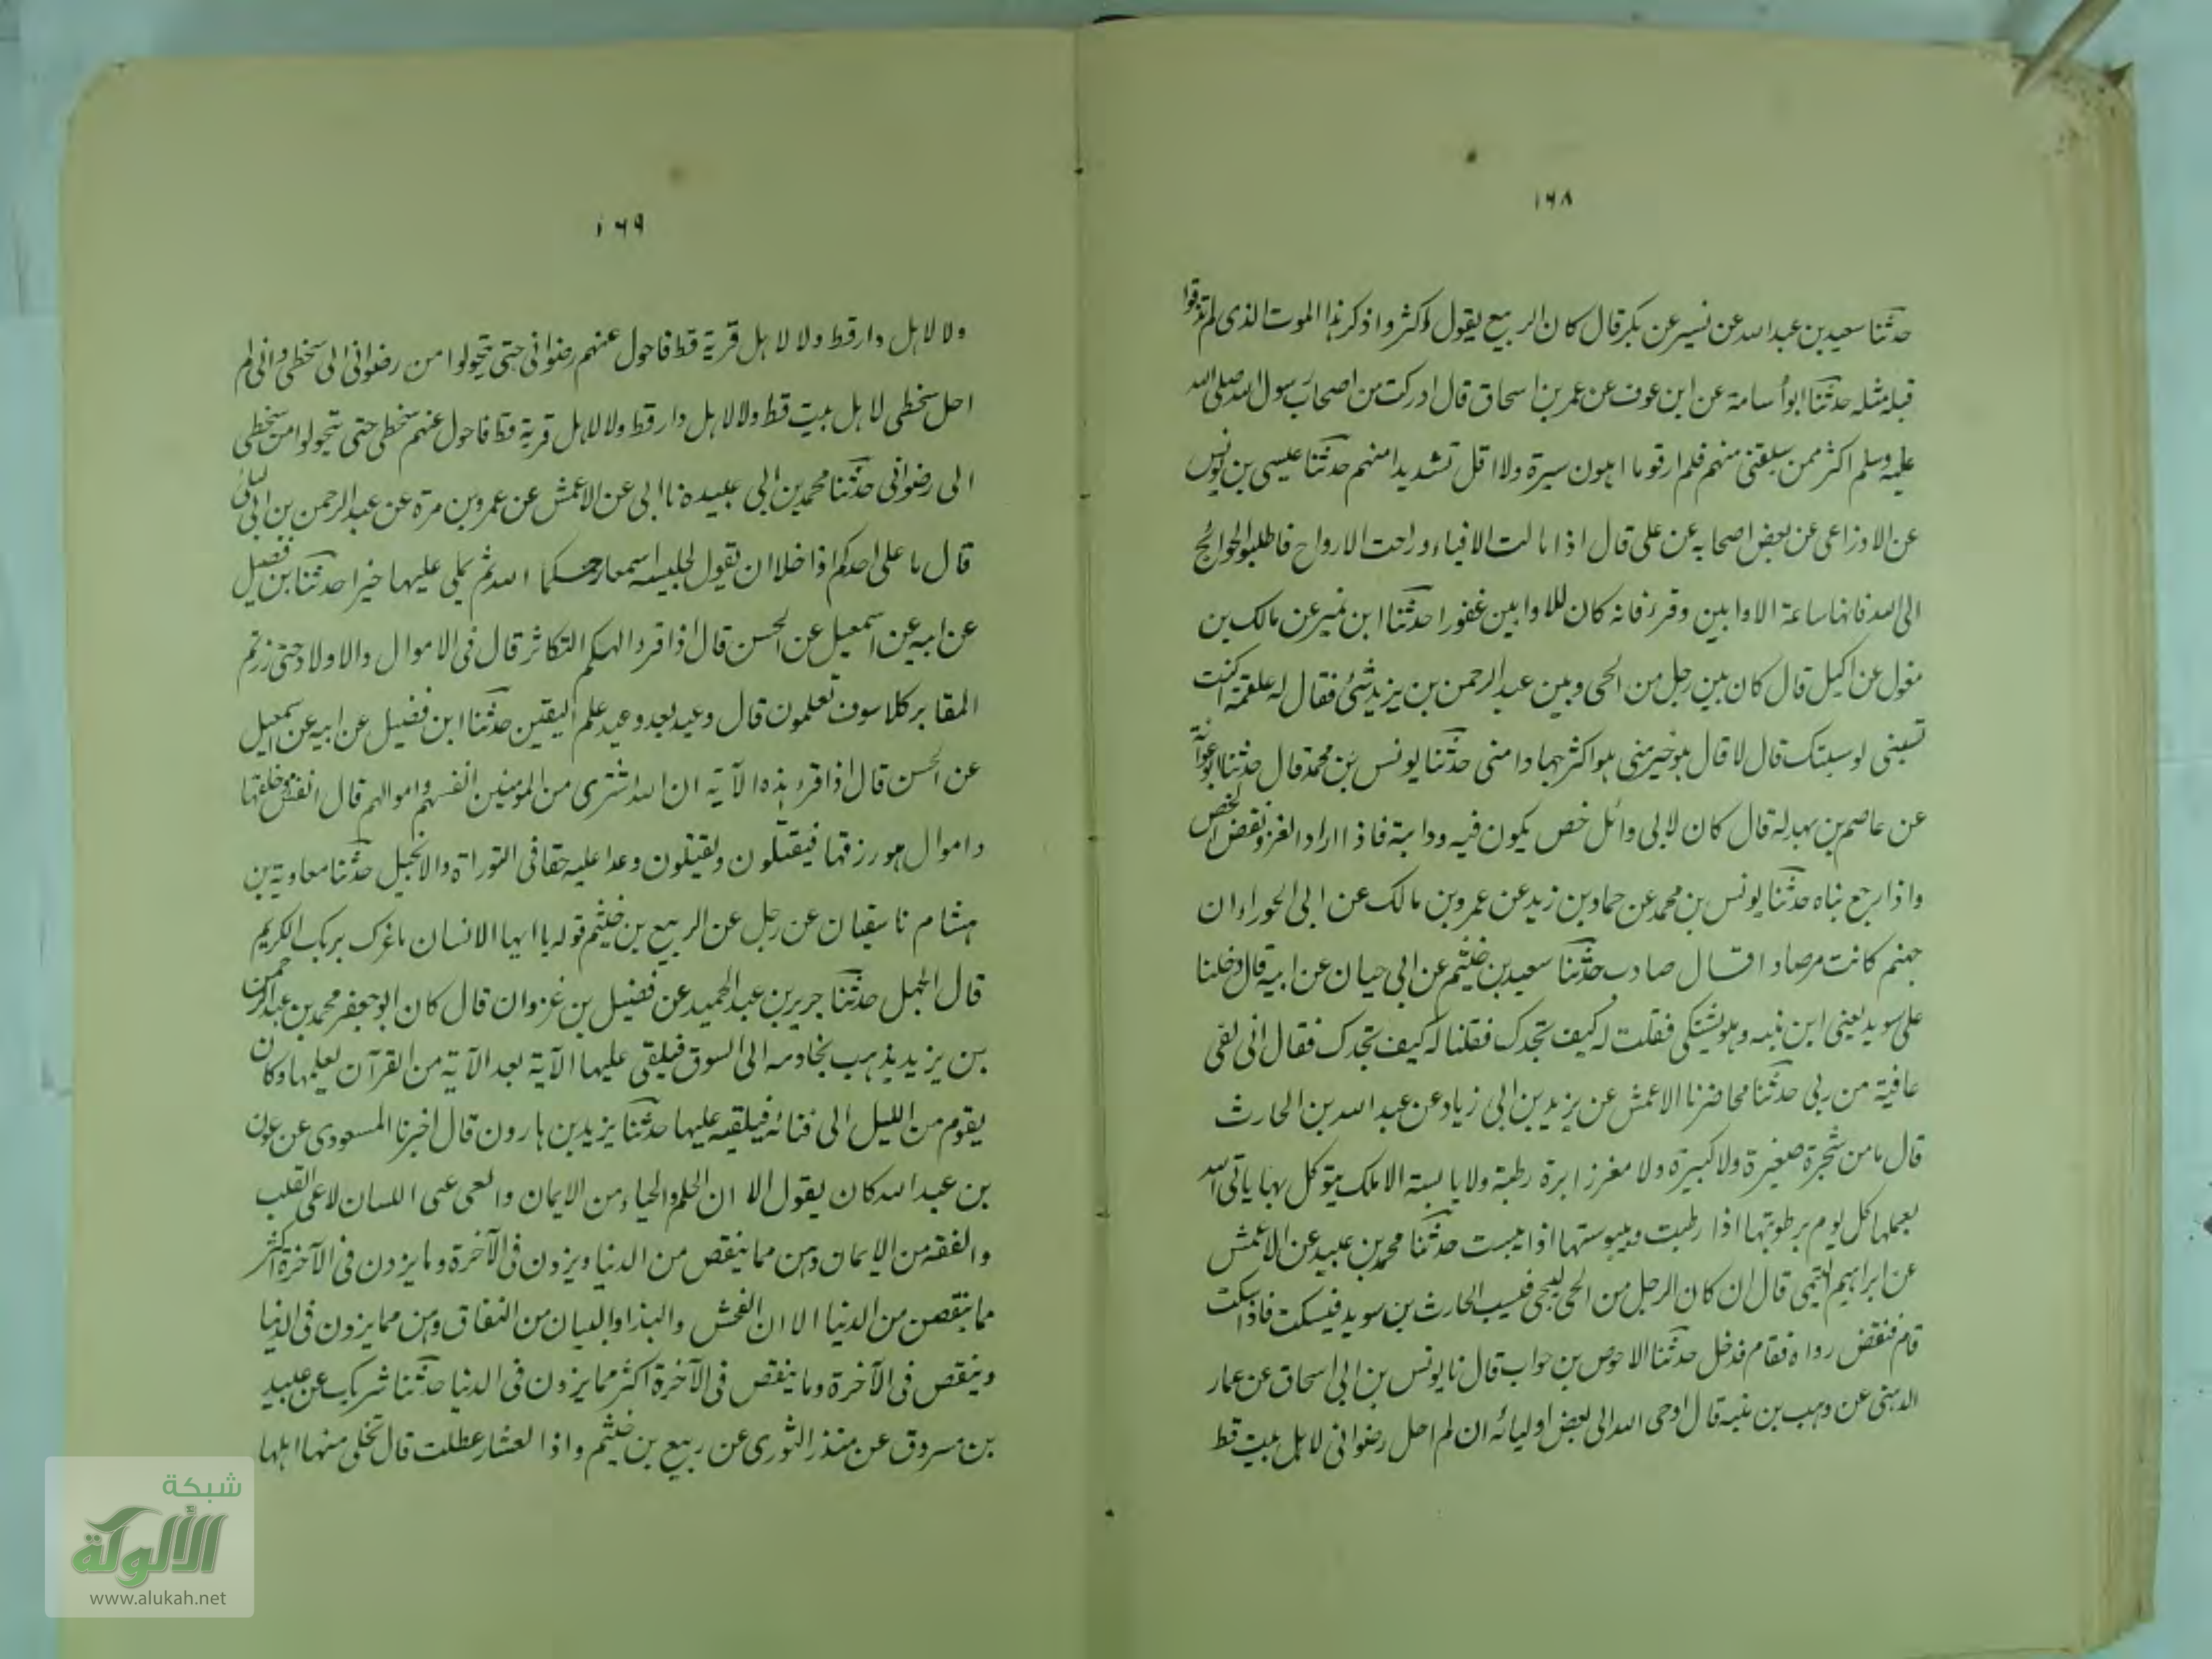 ١٦٨
حدثنا سعيد بن عبد الله عن نسير عن بكر قال كان الربيع يقول اكثروا ذكر هذا الموت الذى لم تذوقوا
قبله مثله حدثنا ابو أسامة عن ابن عوف عن عمر بن اسحاق قال ادركت من اصحاب رسول الله صلى الله
عليه وسلم اكثر ممن سبقنى منهم فلم ار قوما اهون سيرة ولا اقل تشديدا منهم حدثنا عيسى بن يونس
عن الاوزاعى عن بعض اصحابه عن على قال اذا مالت الافياء وراحت الارواح فاطلبوا الحوائج
الى الله فانها ساعة الاوابين وقرء فانه كان للاوابين غفورا حدثنا ابن نمير عن مالك بن
مغول عن اكيل قال كان بين رجل من الحى وبين عبد الرحمن بن يزيد شئ فقال له علقمة اكنت
تسبنى لو سببتك قال لا قال هو خير منى هو اكثر جهادا منى حدثنا يونس بن محمد قال حدثنا ابو عوانة
عن عاصم بن بهدلة قال كان لابى وائل خص يكون فيه ودابته فاذا اراد الغزو نقض الخص
واذا رجع بناه حدثنا يونس بن محمد عن حماد بن زيد عن عمرو بن مالك عن ابى الحوراء ان
جهنم كانت مرصادا قال صادت حدثنا سعيد بن خثيم عن ابى حيان عن ابيه قال دخلنا
على سويد يعنى ابن منبه وهو يشتكى فقلت له كيف تجدك فقلنا له كيف تجدك فقال انى لفى
عافية من ربى حدثنا محاضر نا الاعمش عن يزيد بن ابى زياد عن عبد الله بن الحارث
قال ما من شجرة صغيرة ولا كبيرة ولا مغرز ابرة رطبة ولا يابسة الا ملك يتوكل بها ياتى الله
بعملها كل يوم برطوبتها اذا رطبت ويبوستها اذا يبست حدثنا محمد بن عبيد عن الاعمش
عن ابراهيم التيمى قال ان كان الرجل من الحى ليجى فيسب الحارث بن سويد فيسكت فاذا سكت
قام فنفض رداه فقام فدخل حدثنا الاحوص بن جواب قال نا يونس بن ابى اسحاق عن عمار
الدهنى عن وهب بن منبه قال اوحى الله الى بعض اوليائه ان لم احل رضوانى لاهل بيت قط
١٦٩
ولا لاهل دار قط ولا لاهل قرية قط فاحول عنهم رضوانى حتى يتحولوا من رضوانى الى سخطى وانى لم
احل سخطى لاهل بيت قط ولا لاهل دار قط ولا لاهل قرية قط فاحول عنهم سخطى حتى يتحولوا من سخطى
الى رضوانى حدثنا محمد بن ابى عبيده نا ابى عن الاعمش عن عمرو بن مرة عن عبد الرحمن بن ابى ليلى
قال ما على احدكم اذا خلا ان يقول لجليسه اسمعا رحمكما الله ثم يملى عليها خيرا حدثنا ابن فضيل
عن ابيه عن اسمعيل عن الحسن قال اذا قرء الهكم التكاثر قال فى الاموال والاولاد حتى زرتم
المقابر كلا سوف تعلمون قال وعيد بعد وعيد علم اليقين حدثنا ابن فضيل عن ابيه عن اسمعيل
عن الحسن قال اذا قرء هذه الآية ان الله اشترى من المؤمنين انفسهم واموالهم قال انفس هو خلقها
واموال هو رزقها فيقتلون ويقتلون وعدا عليه حقا فى التوراة والانجيل حدثنا معاوية بن
هشام نا سفيان عن رجل عن الربيع بن خثيم قوله يا ايها الانسان ما غرك بربك الكريم
قال الجهل حدثنا جرير بن عبد الحميد عن فضيل بن غزوان قال كان ابو جعفر محمد بن عبد الرحمن
بن يزيد يذهب بخادمه الى السوق فيلقى عليها الآية بعد الآية من القرآن يعلمها وكان
يقوم من الليل الى فنائه فيلقيه عليها حدثنا يزيد بن هارون قال اخبرنا المسعودى عن عون
بن عبد الله كان يقول الا ان الحلم والحياء من الايمان والعى عى اللسان لا عى القلب
والفقه من الايمان وهن مما ينقص من الدنيا ويزدن فى الآخرة وما يزدن فى الآخرة اكثر
مما ينقصن من الدنيا الا ان الفحش والبذاء والبيان من النفاق وهن مما يزدن فى الدنيا
وينقص فى الآخرة وما ينقص فى الآخرة اكثر مما يزدن فى الدنيا حدثنا شريك عن عبيد
بن مسروق عن منذر الثورى عن ربيع بن خثيم واذا العشار عطلت قال تخلى منها اهلها
شبكة
الألوكة
www.alukah.net